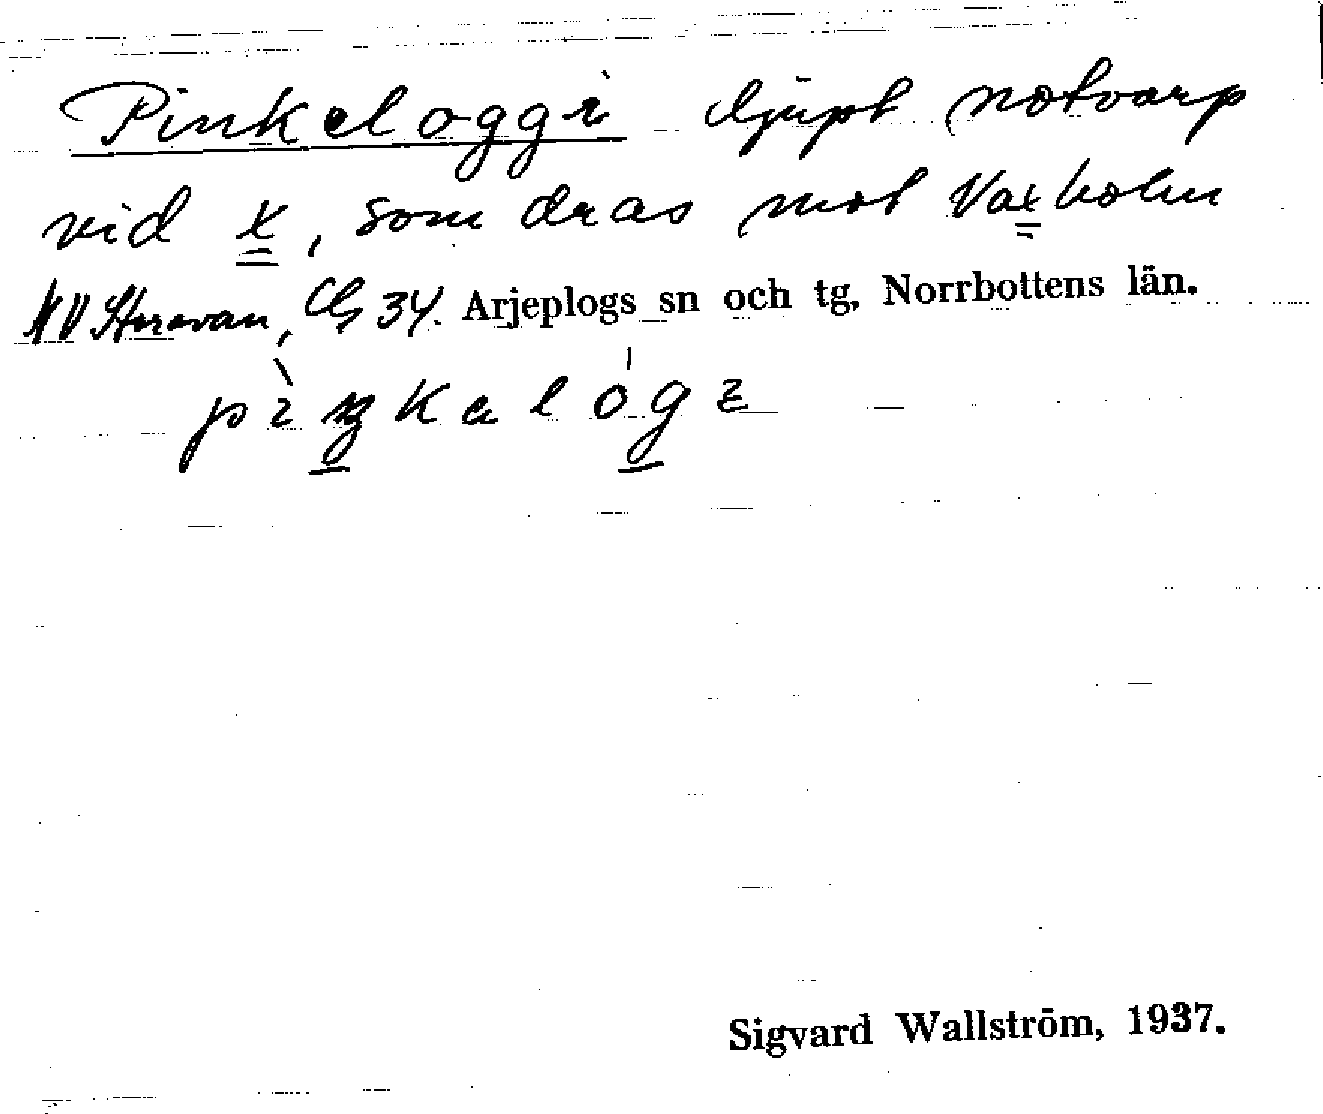 Pinkeloggi djupt notvarp
vid x, som dras mot Vaxholm
NV Storavan, Cb 34. Arjeplogs sn och tg, Norrbottens län.
Sigvard Wallström, 1937.